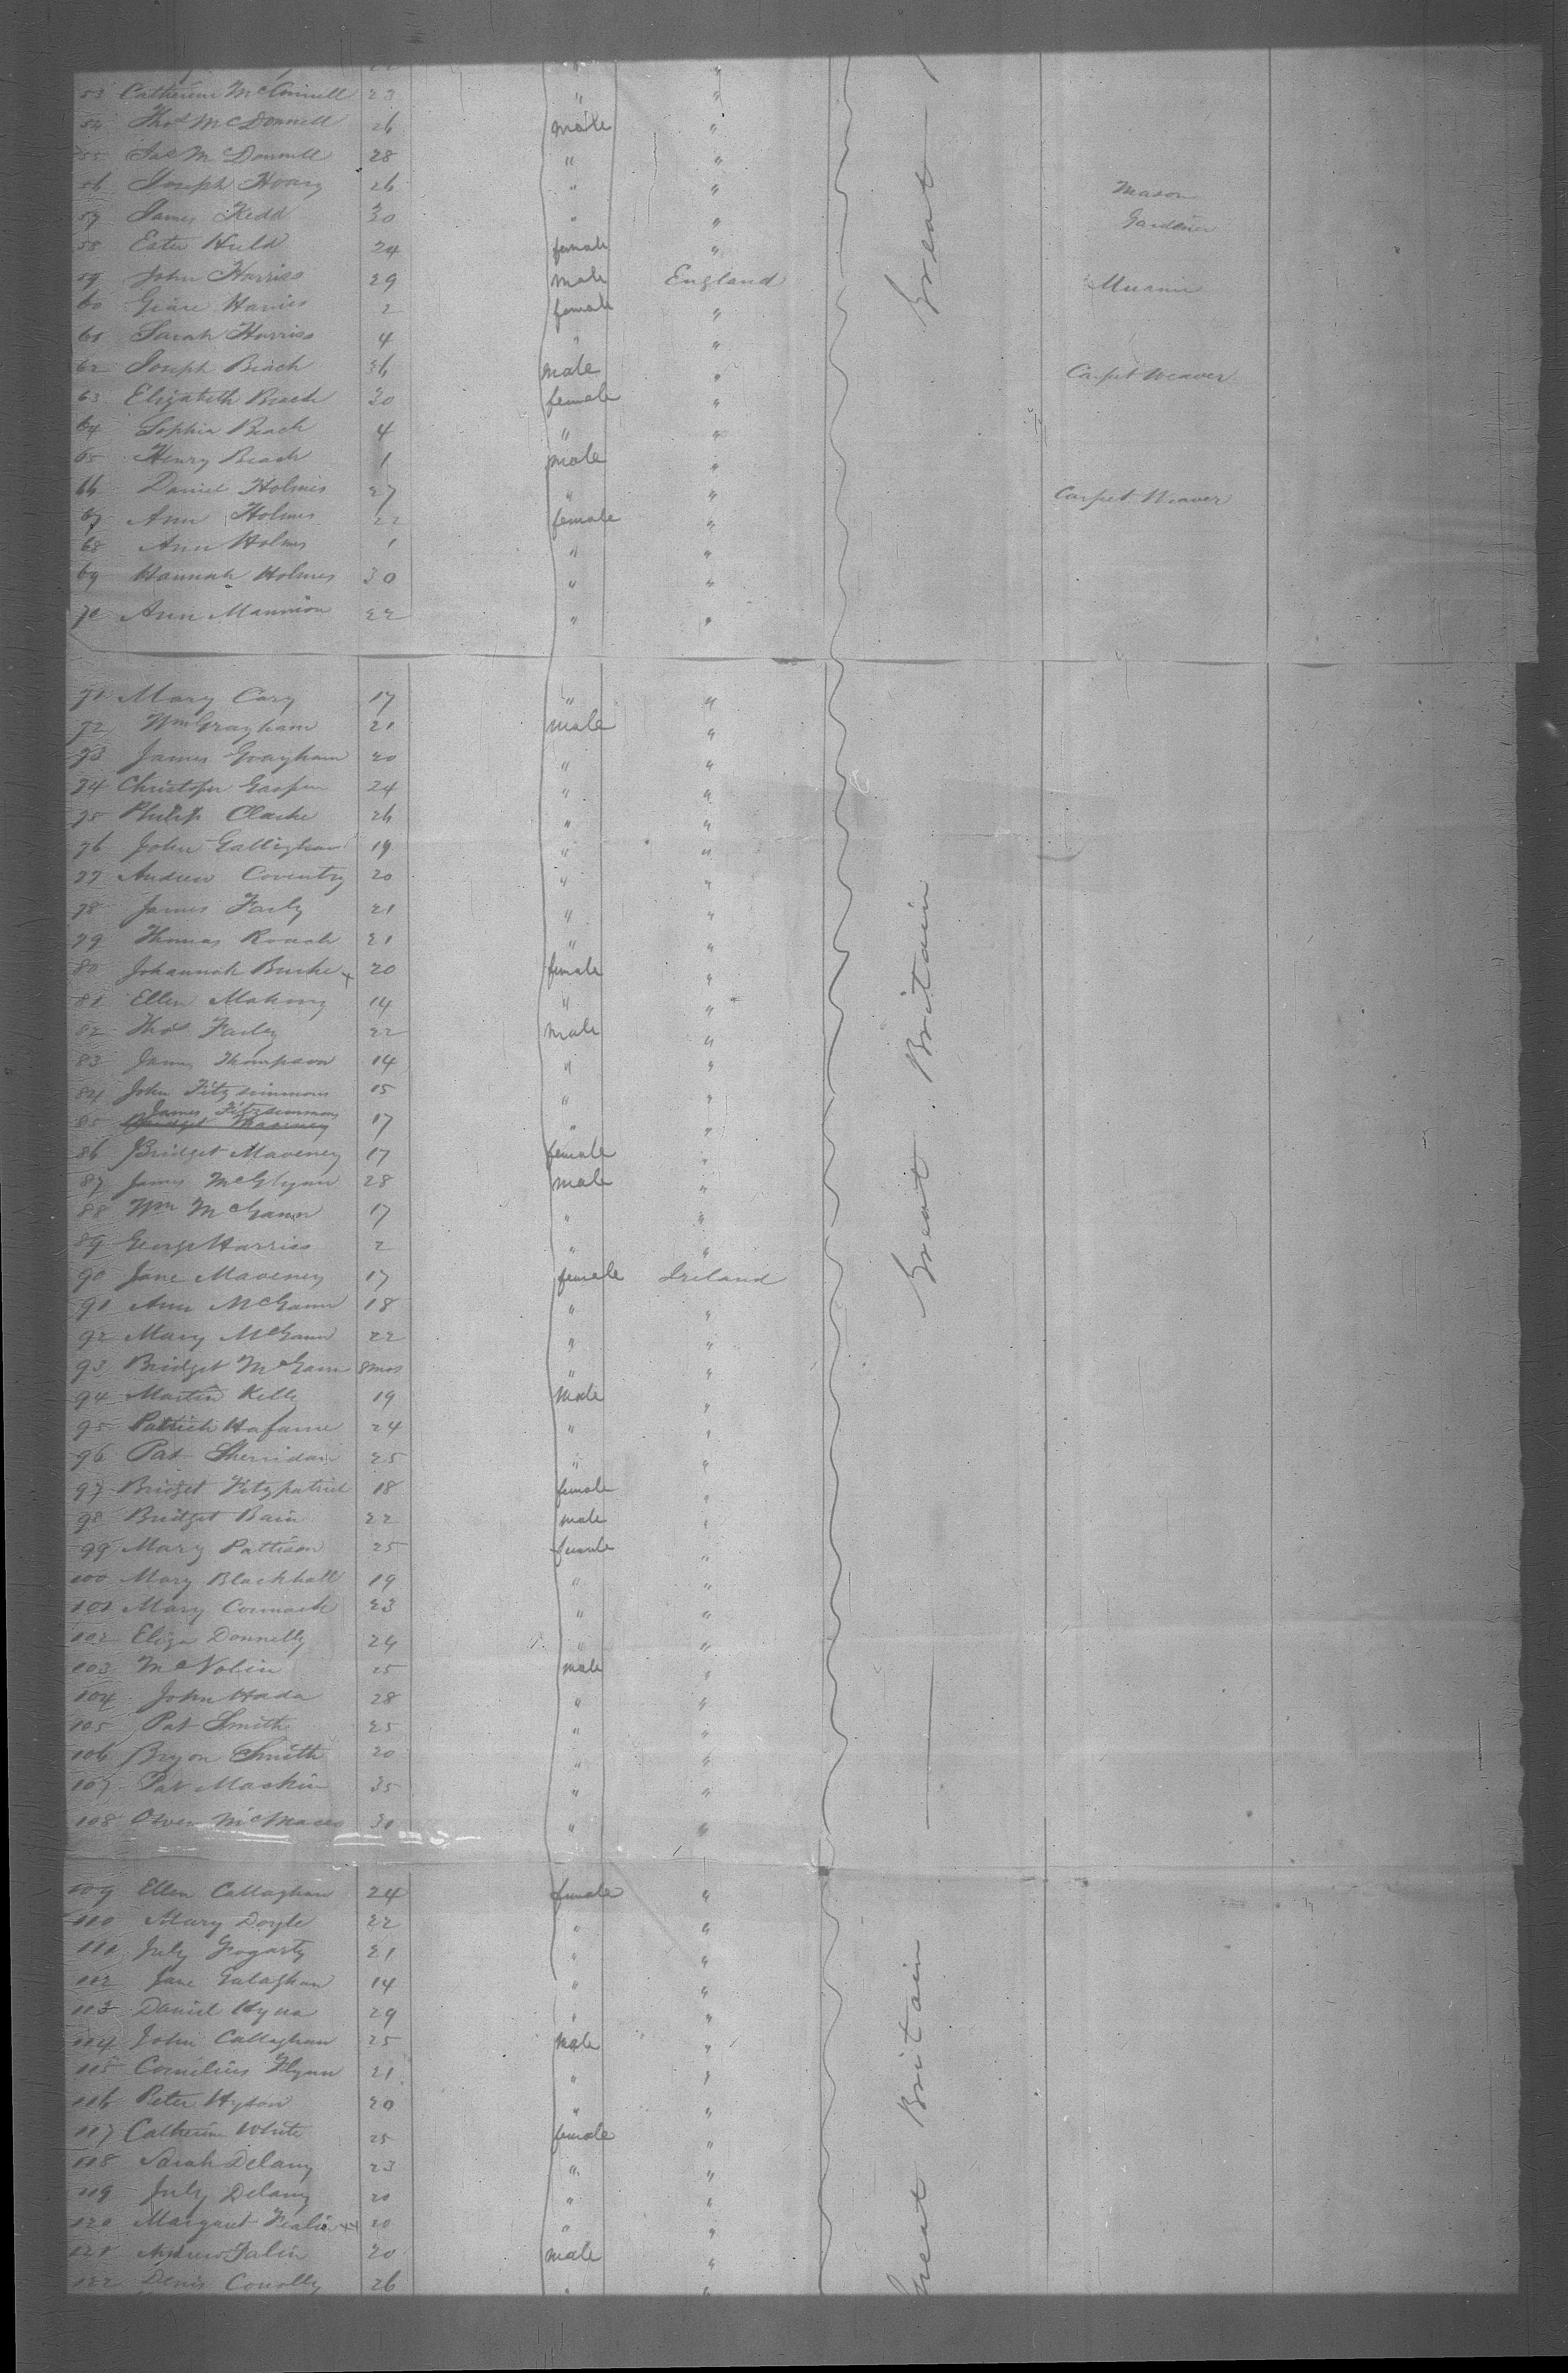 53 Catherine McConnell 23 " "
54 Thos McDonnell 26 male "
55 Jas McDonnell 28 " "
56 Joseph Hoary 26 " " Mason
57 James Kedd 30 " " Gardener
58 Ester Huld 24 female "
59 John Harriss 29 male England
60 Harriss 2 female "
61 Sarah Harriss 4 " "
62 Joseph Beach 36 male " Carpet Weaver
63 Elizabeth Beach 30 female "
64 Sophia Beach 4 " "
65 Henry Beach 1 male "
66 Daniel Holmes 27 " " Carpet Weaver
67 Ann Holmes 22 female "
68 Ann Holmes 1 " "
69 Hannah Holmes 30 " "
70 Ann Mannion 22 " "
Great
71 Mary Cary 17 " "
72 Wm Grayham 21 male "
73 James Grayham 20 " "
74 Christopher 24 " "
75 Philip Clarke 26 " "
76 John Gallighan 19 " "
77 Andrew Coventry 20 " "
78 James Farly 21 " "
79 Thomas Roach 21 " "
80 Johannah Burke x 20 female "
81 Ellen Mahony 14 " "
82 Thos Farley 22 male "
83 James Thompson 14 " "
84 John Fitzsimmons 15 " "
James Fitzsimmons
85 Bridget Maveney 17 " "
86 Bridget Maveney 17 female "
87 James McGlynn 28 male "
88 Wm McGann 17 " "
89 George Harriss 2 " "
90 Jane Maveney 17 female Ireland
91 Ann McGann 18 " "
92 Mary McGann 22 " "
93 Bridget McGann 8mos " "
94 Martin Kelly 19 male "
95 Patrick 24 " "
96 Pat Sherridan 25 " "
97 Bridget Fitzpatrick 18 female "
98 Bridget Bain 22 male "
99 Mary Pattison 25 female "
100 Mary Blackhall 19 " "
101 Mary Cormack 23 " "
102 Eliza Donnelly 24 " "
103 McNolin 25 male "
104 John Hada 28 " "
105 Pat Smith 25 " "
106 Bryon Smith 20 " "
107 Pat Mackin 35 " "
108 Owen 30 " "
Great Britain
109 Ellen Callaghan 24 female "
110 Mary Doyle 22 " "
111 July Fogarty 21 " "
112 Jane Galaghan 14 " "
113 Daniel Hyna 29 " "
114 John Callaghan 25 male "
115 Cornelius Flynn 21 " "
116 Peter Hyson 20 " "
117 Catherine White 25 female "
118 Sarah Delany 23 " "
119 July Delany 20 " "
120 Margaret 20 " "
121 Andrew Falin 20 male "
122 Denis Conolly 26 " "
Great Britain